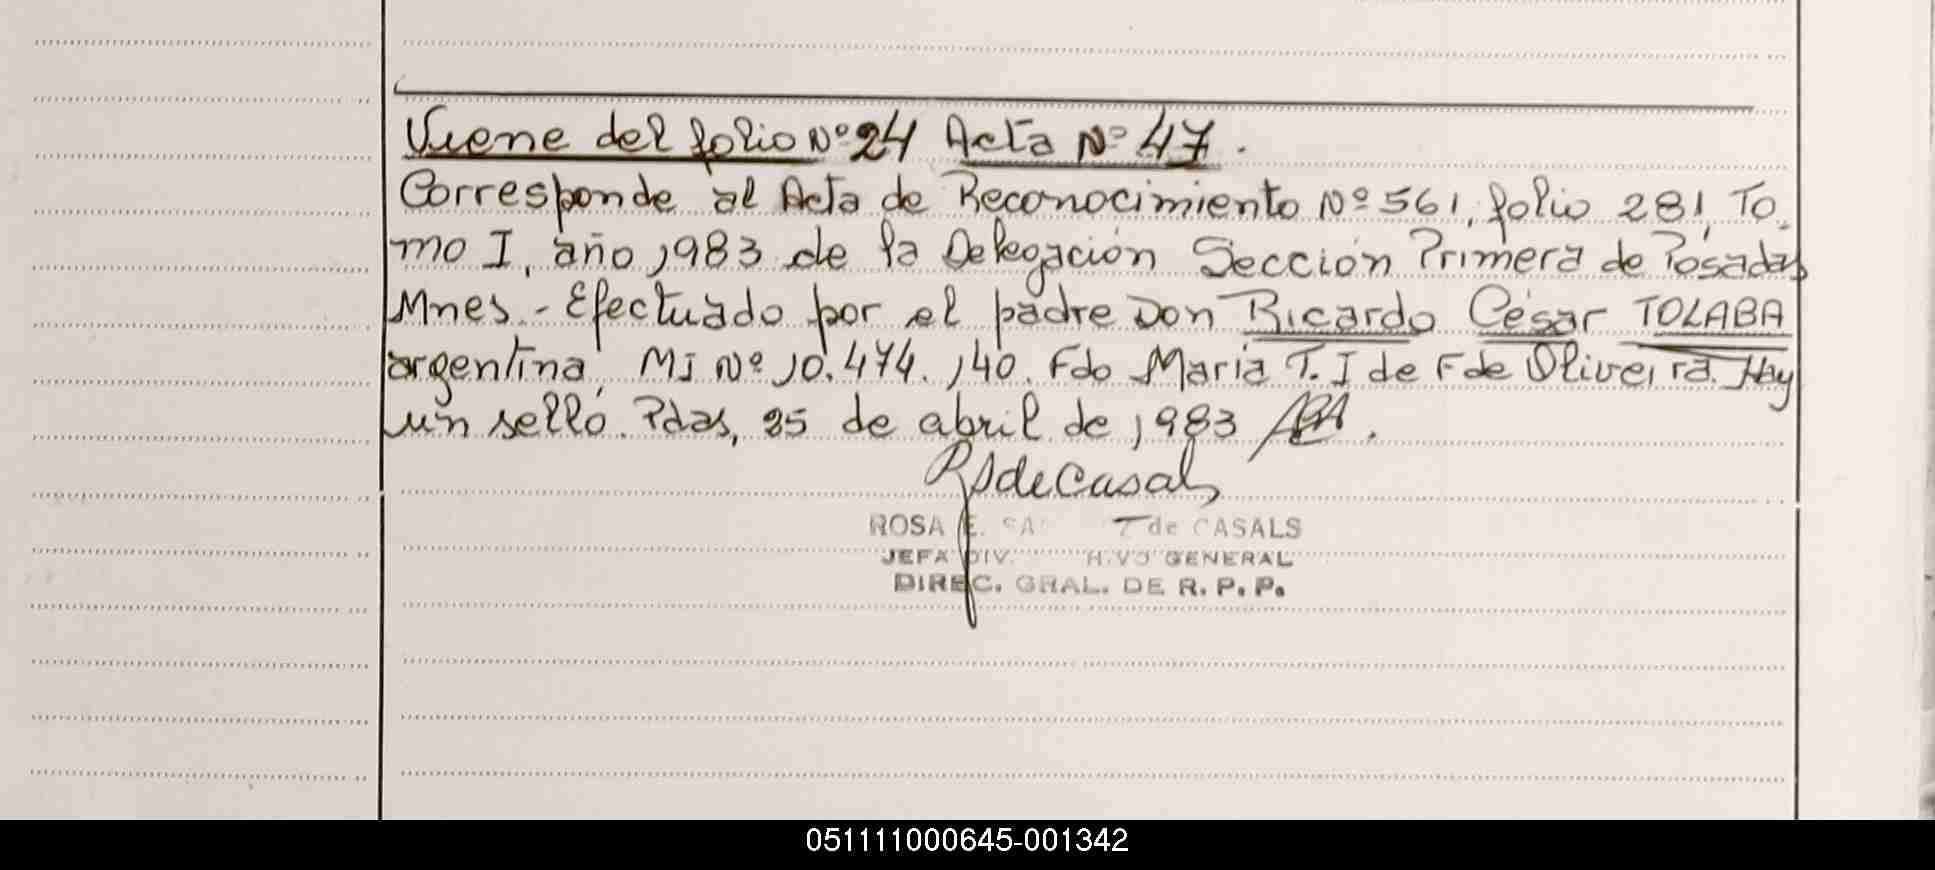 Viene del folio Nº 24 Acta Nº 47.
Corresponde al Acta de Reconocimiento Nº 561, folio 281, To-
mo I, año 1983 de la Delegación Sección Primera de Posadas
Mnes.- Efectuado por el padre Don Ricardo César TOLABA
argentina, MI Nº 10.474.140. Fdo María T. I de F de Oliveira. Hay
un sello. Pdas, 25 de abril de 1983
ROSA E. de CASALS
JEFA DIV. GENERAL
DIREC. GRAL. DE R. P. P.
051111000645-001342